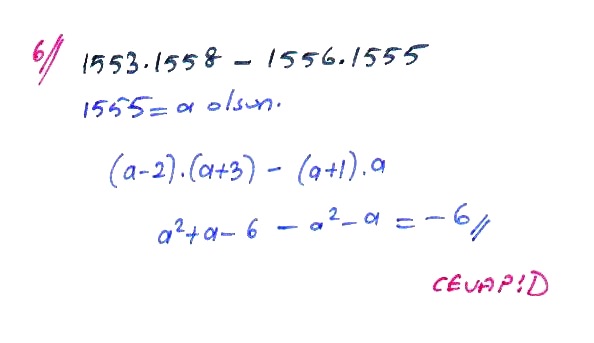 6// 1553.1558 - 1556.1555
1555 = a olsun.
(a-2).(a+3) - (a+1).a
a²+a-6 - a²-a = -6//
CEVAP:D